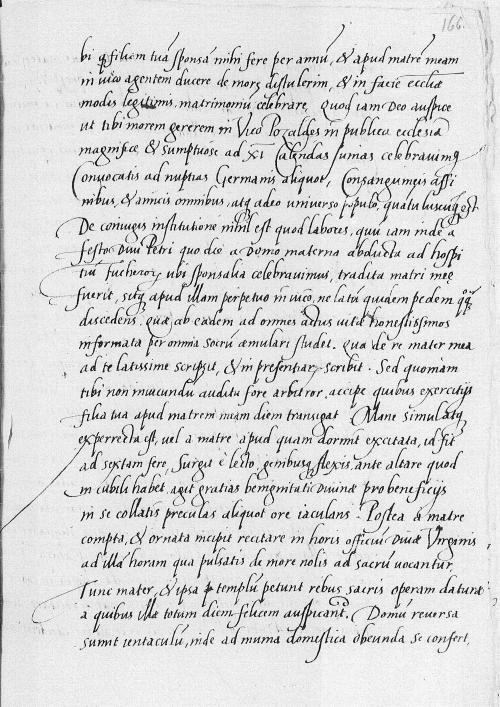 166.
bi q̃ filiem tuã sponsã mihi fere per annũ, & apud matrẽ meam
in vico agentem ducere de more distulerim, & in facie eccliæ
modis legitimis, matrimoniũ celebrare, quod iam Deo auspice
ut tibi morem gererem in Vico Pozaldes in publica ecclesia
magnifice & sumptuose ad XI Calendas Junias celebravimus
Convocatis ad nuptias Germanis aliquot, Consanguineis affi
nibus, & amicis omnibus, atq adeo universo pópulo, quãtuluscuq est.
De coniugis institutione nihil est quod labores, quũ iam inde a
festo Divi Petri quo die a Domo materna abducta ad hospi
tiũ fucheror ubi sponsalia celebravimus, tradita matri meę
fuerit, sitq apud illam perpetuo in vico, ne latũ quidem pedem
discedens. quæ ab eadem ad omnes actus vitæ honestissimos
informata per omnia socrũ æmulari studet. Qua de re mater mea
ad te latissime scripsit, & in præsentiar scribit. Sed quoniam
tibi non iniucundũ auditu fore arbitror, accipe quibus exercitijs
filia tua apud matrem meam diem transigat. Mane simul atq
experrecta est, vel a matre apud quam dormit excitata, id fit
ad sextam fere, surgit è lecto, genibusq flexis, ante altare quod
in cubili habet, agit gratias benignitati Divinæ pro beneficijs
in se collatis preculas aliquot ore iaculans. Postea a matre
compta, & ornata incipit recitare in horis officiũ Divæ Virginis
ad illã horam qua pulsatis de more nolis ad sacrũ vocantur.
Tunc mater, & ipsa templũ petunt rebus sacris operam daturæ
à quibus illæ totum diem felicem auspicant. Domũ reversa
sumit ientaculũ, inde ad munia domestica obeunda se confert,